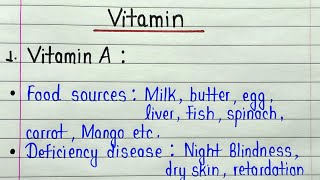 Vitamin
1. Vitamin A :
• Food sources : Milk, butter, egg,
liver, fish, spinach,
carrot, Mango etc.
• Deficiency disease : Night Blindness,
dry skin, retardation